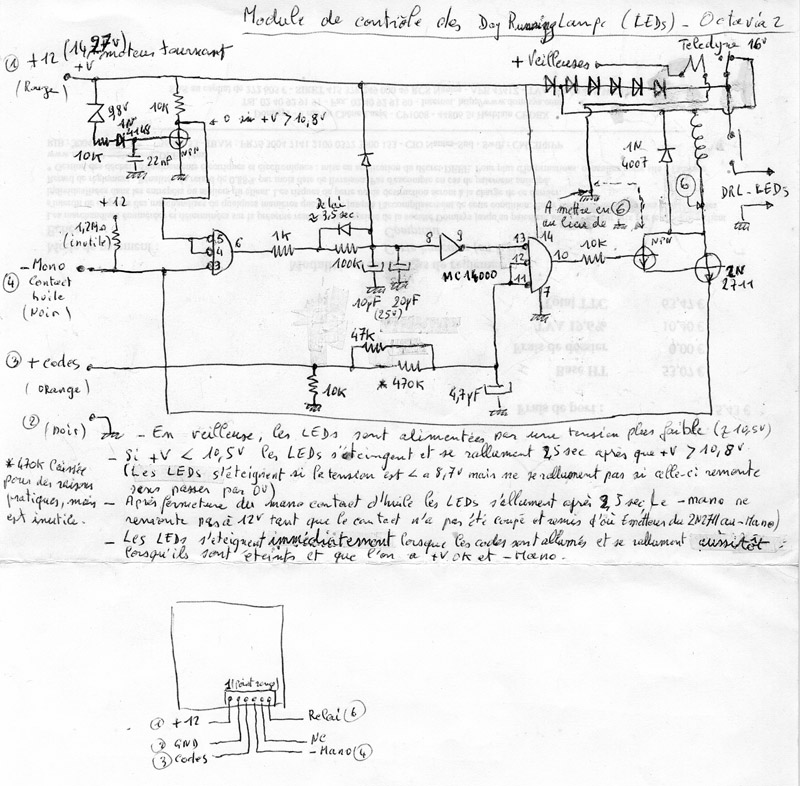 Module de contrôle des Day Running Lamps (LEDs) - Octavia 2
① +12 (14,27V) moteur tournant
+V
(Rouge)
9,8V
1N
4148
10K
10K
22nF
NPN
0 si +V > 10,8V
+ Veilleuses
Teledyne 16V
1N
4007
⑥
DRL-LEDs
A mettre en ⑥
au lieu de
+12
1,2MΩ
(inutile)
- Mano
④ Contact
huile
(Noir)
5
4
3
6
1K
Délai
≈ 3,5 sec
100K
10µF
20µF
(25V)
8
9
MC14000
13
12
11
14
10
7
10K
NPN
2N
2711
③ + codes
(Orange)
10K
47K
* 470K
4,7µF
② (Noir)
- En veilleuse, les LEDs sont alimentées par une tension plus faible (≥ 10,5V)
- Si +V < 10,5V les LEDs s'éteingent et se rallument 2,5 sec après que +V > 10,8V
(Les LEDs s'éteignent si la tension est < à 8,7V mais ne se rallument pas si celle-ci remonte
sans passer par 0V)
* 470K laissée
pour des raisons
pratiques, mais
est inutile.
- Après fermeture du mano contact d'huile les LEDs s'allument après 2,5 sec Le - mano ne
remonte pas à 12V tant que le contact n'a pas été coupé et remis d'où Emetteur du 2N2711 au -Mano)
- Les LEDs s'éteignent immédiatement lorsque les codes sont allumés et se rallument aussitôt
lorsqu'ils sont éteints et que l'on a +V OK et -Mano.
1 (Point rouge)
① +12
② GND
③ Codes
Relai ⑥
NC
- Mano ④